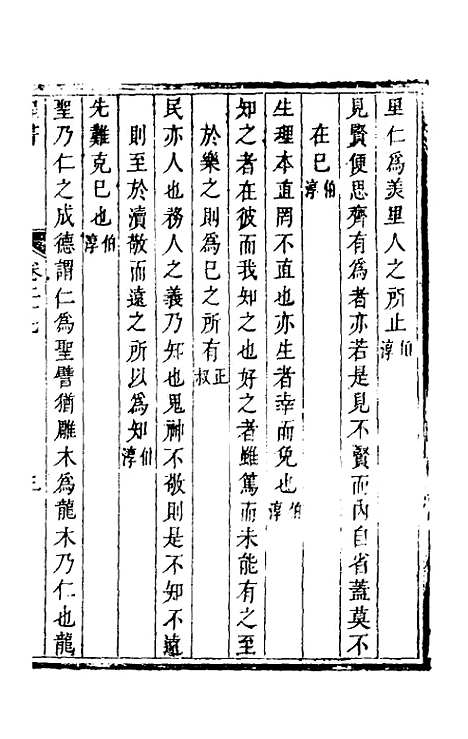 里仁爲美里人之所止伯淳
見賢便思齊有爲者亦若是見不賢而內自省蓋莫不
在已伯淳
生理本直罔不直也亦生者幸而免也伯淳
知之者在彼而我知之也好之者雖篤而未能有之至
於樂之則爲已之所有正叔
民亦人也務人之義乃知也鬼神不敬則是不知不遠
則至於瀆敬而遠之所以爲知伯淳
先難克已也伯淳
聖乃仁之成德謂仁爲聖譬猶雕木爲龍木乃仁也龍